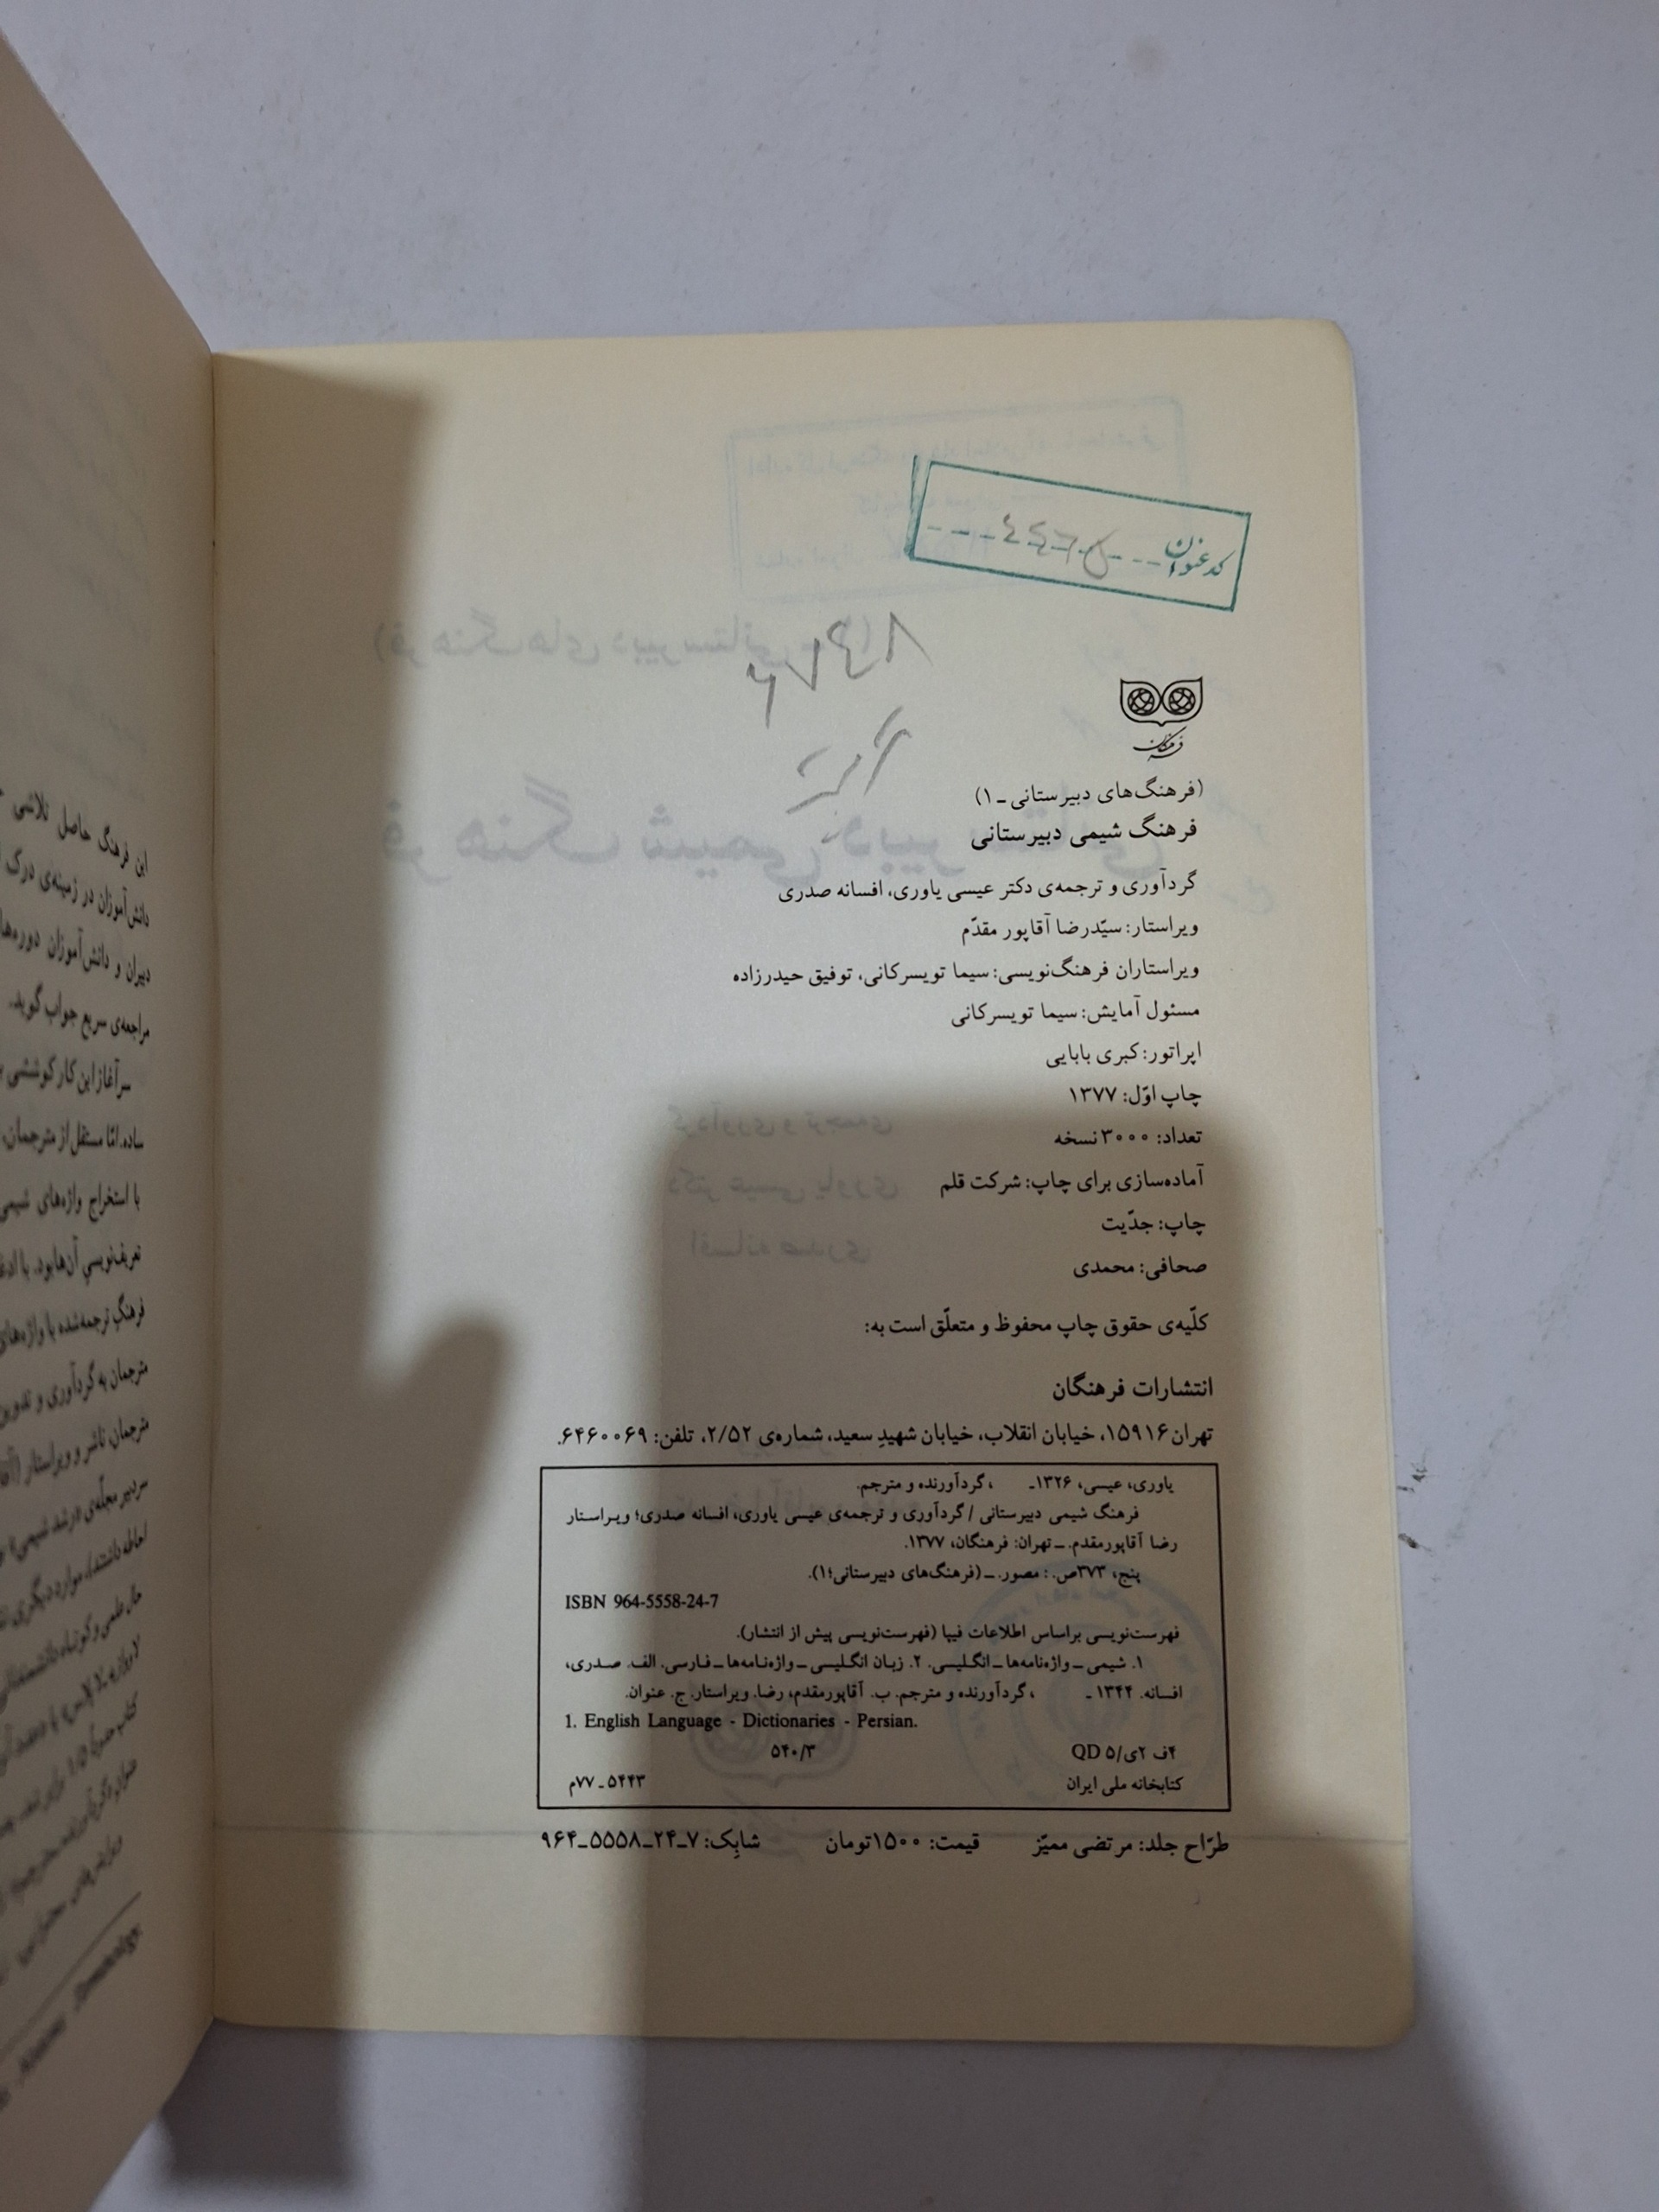 کد عنوان
فرهنگان
(فرهنگ‌های دبیرستانی ـ ۱)
فرهنگ شیمی دبیرستانی
گردآوری و ترجمه‌ی دکتر عیسی یاوری، افسانه صدری
ویراستار: سیّدرضا آقاپور مقدّم
ویراستاران فرهنگ‌نویسی: سیما تویسرکانی، توفیق حیدرزاده
مسئول آمایش: سیما تویسرکانی
اپراتور: کبری بابایی
چاپ اوّل: ۱۳۷۷
تعداد: ۳۰۰۰ نسخه
آماده‌سازی برای چاپ: شرکت قلم
چاپ: جدّیت
صحافی: محمدی
کلّیه‌ی حقوق چاپ محفوظ و متعلّق است به:
انتشارات فرهنگان
تهران ۱۵۹۱۶، خیابان انقلاب، خیابان شهیدِ سعید، شماره‌ی ۲/۵۲، تلفن: ۶۴۶۰۰۶۹.
یاوری، عیسی، ۱۳۲۶ـ ، گردآورنده و مترجم.
فرهنگ شیمی دبیرستانی / گردآوری و ترجمه‌ی عیسی یاوری، افسانه صدری؛ ویراستار
رضا آقاپورمقدم. ـ تهران: فرهنگان، ۱۳۷۷.
پنج، ۳۷۳ص. : مصور. ـ (فرهنگ‌های دبیرستانی؛۱).
ISBN 964-5558-24-7
فهرست‌نویسی براساس اطلاعات فیپا (فهرست‌نویسی پیش از انتشار).
۱. شیمی ـ واژه‌نامه‌ها ـ انگلیسی. ۲. زبان انگلیسی ـ واژه‌نامه‌ها ـ فارسی. الف. صدری،
افسانه. ۱۳۴۴ ـ ، گردآورنده و مترجم. ب. آقاپورمقدم، رضا. ویراستار. ج. عنوان.
1. English Language - Dictionaries - Persian.
۴ف ۲ی/۵ QD ۵۴۰/۳
کتابخانه ملی ایران ۵۴۴۳ ـ ۷۷م
طرّاح جلد: مرتضی ممیّز قیمت: ۱۵۰۰تومان شابِک: ۷ـ۲۴ـ۵۵۵۸ـ۹۶۴
این فرهنگ حاصل تلاشی
دانش‌آموزان در زمینه‌ی درک
دبیران و دانش‌آموزان دوره‌ها
مراجعه‌ی سریع جواب گوید.
سرآغاز این کار کوششی
ساده. امّا مستقل از مترجمان،
با استخراج واژه‌های شیمی
تعریف‌نویسیِ آن‌ها بود. با
فرهنگ ترجمه‌شده با واژه‌های
مترجمان به گردآوری و تدوین
مترجمان، ناشر و ویراستار
سردبیر مجلّه‌ی «رشد شیمی»